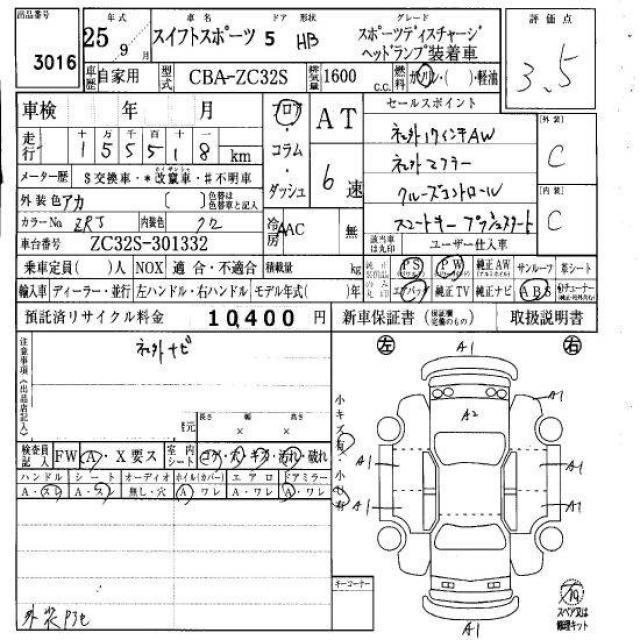 出品番号 3016
年式 25 年 9 月
車名 スイフトスポーツ
ドア 形状 5 HB
グレード
スポーツディスチャージ
ヘッドランプ装着車
評価点
3.5
車歴 自家用 型式 CBA-ZC32S 排気量 1600 c.c. 燃料 ガソリン・( )・軽油
車検 年 月
フロア・コラム・ダッシュ
AT
6速
セールスポイント
走行 十 万 千 百 十 一
155518 km
ネット外17インチAW
ネット外マフラー
クルーズコントロール
スマートキー プッシュスタート
外装 C
内装 C
メーター歴 $交換車・*改竄車・#不明車
外装色 アカ ( ) 色替は色替車と記入
カラーNo. ZRJ 内装色 クロ
冷房 AAC 無
車台番号 ZC32S-301332
該当車は丸印 ユーザー仕入車
乗車定員( )人 NOX 適合・不適合 積載量 kg
PS PW 純正AW サンルーフ 革シート
輸入車 ディーラー・並行 左ハンドル・右ハンドル モデル年式( )年
エアバッグ 純正TV 純正ナビ ABS
預託済リサイクル料金 10,400 円
新車保証書 取扱説明書
注意事項(出品店記入)
長さ 幅 高さ
× ×
検査員記入 FW A・X要ス 室内シート コゲ・穴・キズ・汚れ・破れ
ハンドル シート オーディオ ホイル(カバー) エアロ ドアミラー
A・スレ A・スレ 無し・穴 A・ワレ A・ワレ A・ワレ
小キズ有・小凹有
左 右
A1
A1
A2
A1 A1
A1 A1
A1
キーコーナー
スペア又は
修理キット